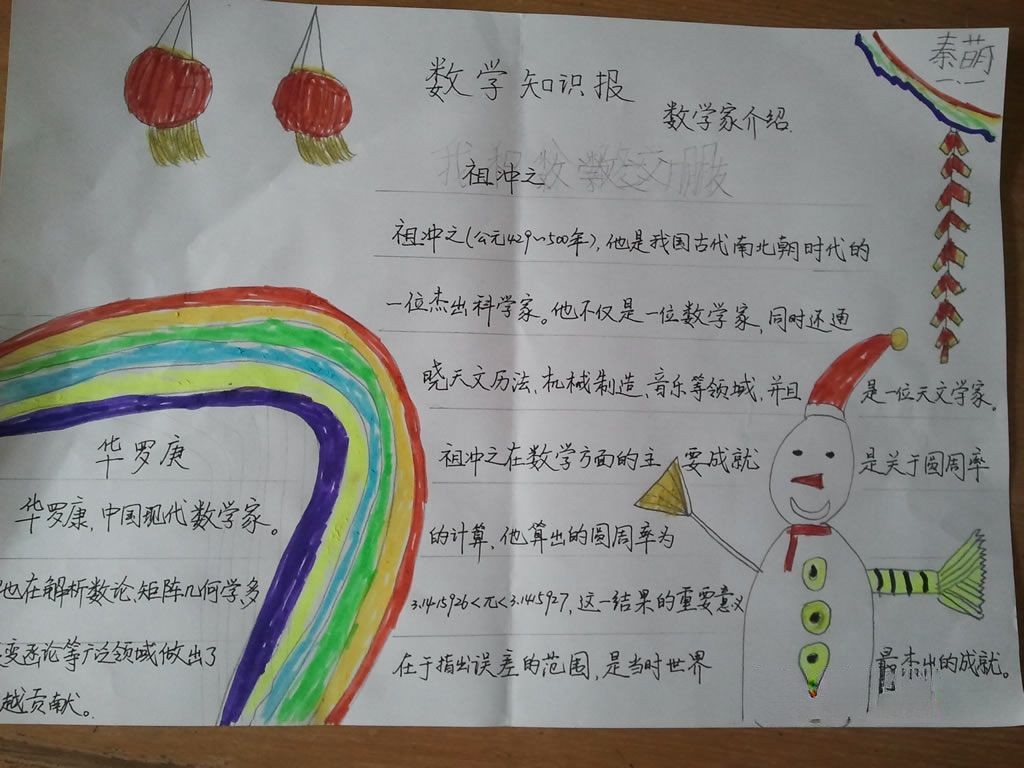 数学知识报
秦萌
一.一
数学家介绍.
我和数学交朋友
祖冲之
祖冲之(公元429~500年),他是我国古代南北朝时代的
一位杰出科学家。他不仅是一位数学家,同时还通
晓天文历法、机械制造、音乐等领域,并且是一位天文学家。
祖冲之在数学方面的主要成就是关于圆周率
的计算,他算出的圆周率为
3.1415926<π<3.1415927,这一结果的重要意义
在于指出误差的范围,是当时世界最杰出的成就。
华罗庚
华罗康,中国现代数学家。
他在解析数论、矩阵几何学多
变函论等广泛领域做出了
越贡献。